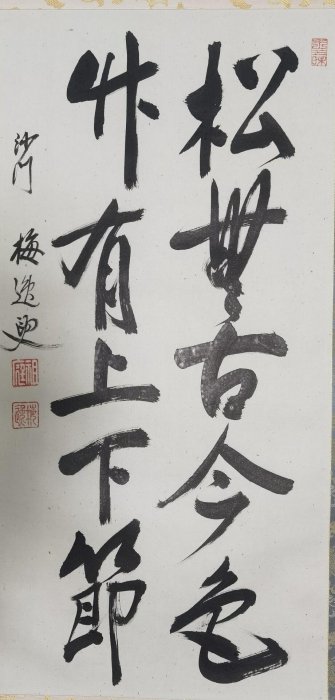 松無古今色
竹有上下節
沙門 梅逸叟